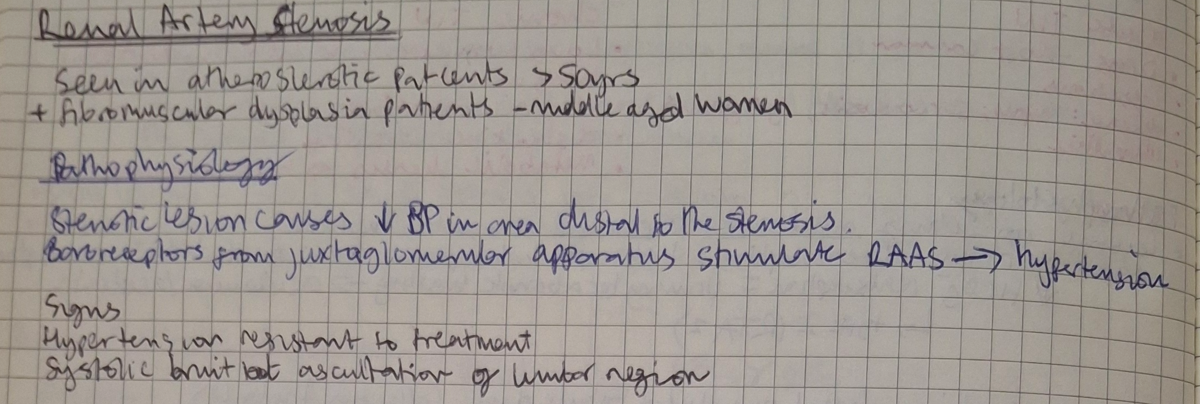 Renal Artery Stenosis
Seen in atherosclerotic patients >50yrs
+ fibromuscular dysplasia patients - middle aged women
Pathophysiology
Stenotic lesion causes ↓ BP in area distal to the stenosis.
Baroreceptors from juxtaglomerular apparatus stimulate RAAS → hypertension
Signs
Hypertension resistant to treatment
Systolic bruit ascultation of lumbar region